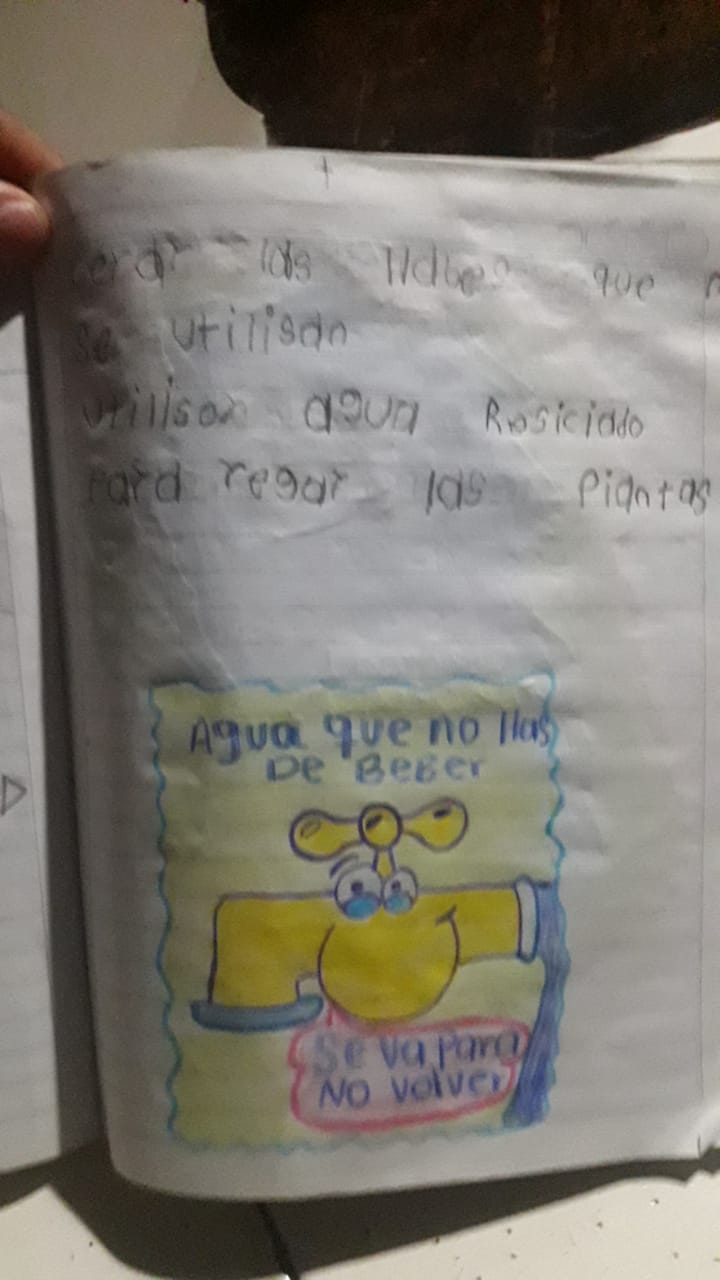 las llabes que
se utilisan
utilison agua Rosiciado
Para regar las Plantas
Agua que no llas
De BeBer
Se va para
No volver